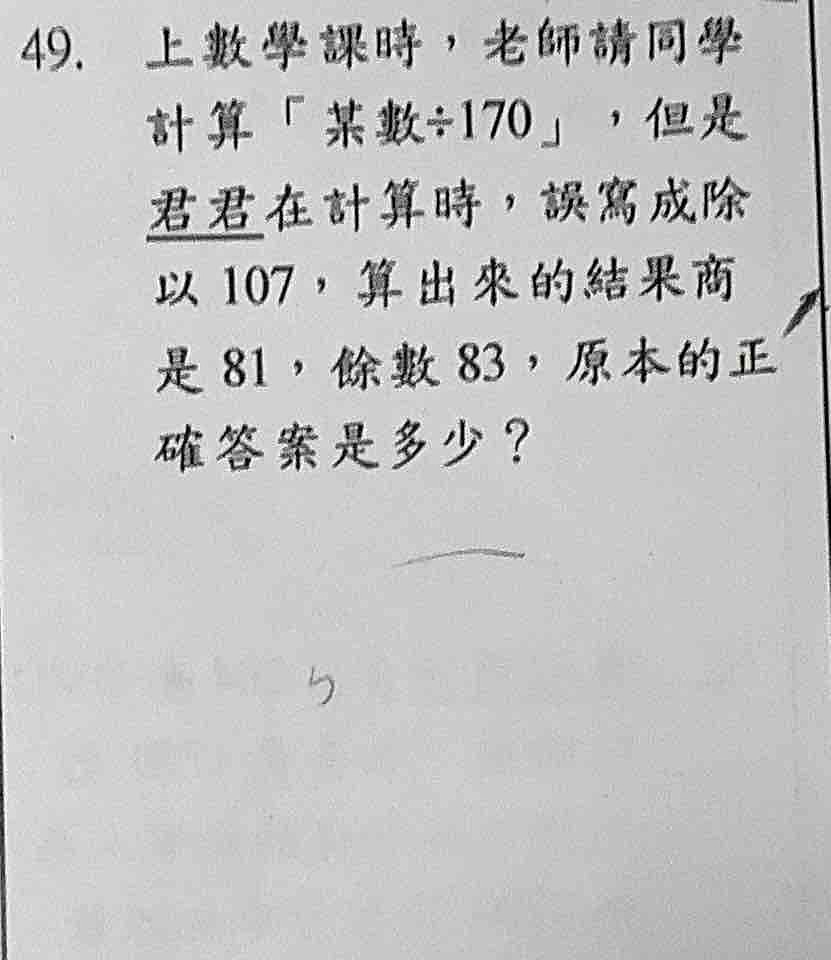 49. 上數學課時，老師請同學
計算「某數÷170」，但是
君君在計算時，誤寫成除
以 107，算出來的結果商
是 81，餘數 83，原本的正
確答案是多少？